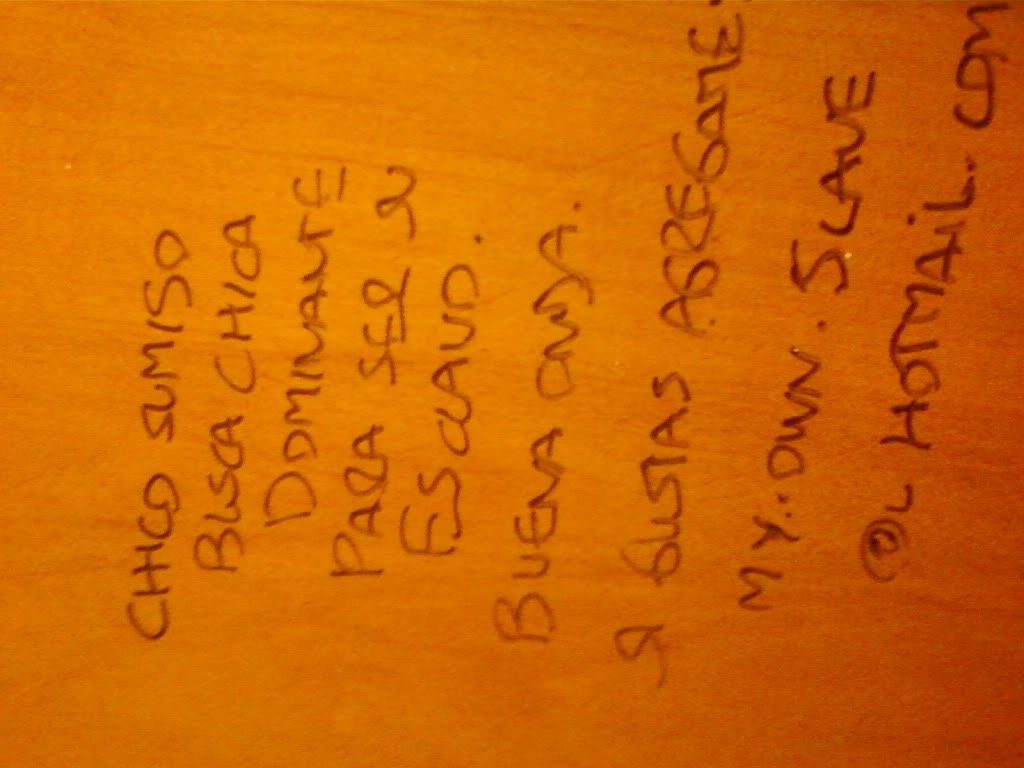 CHICO SUMISO
BUSCA CHICA
DOMINANTE
PARA SER SU
ESCLAVO.
BUENA ONDA.
SI GUSTAS AGREGAME:
MY.OWN.SLAVE
@L HOTMAIL.COM